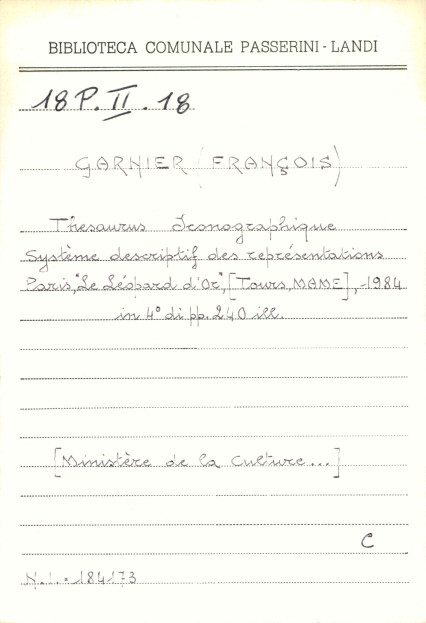 BIBLIOTECA COMUNALE PASSERINI - LANDI
18 P. II . 18
GARNIER (FRANÇOIS)
Thesaurus Iconographique
Système descriptif des représentations
Paris, "Le Léopard d'Or", [Tours, MAME], 1984
in 4° di pp. 240 ill.
[Ministère de la Culture...]
C
N.I. = 184173